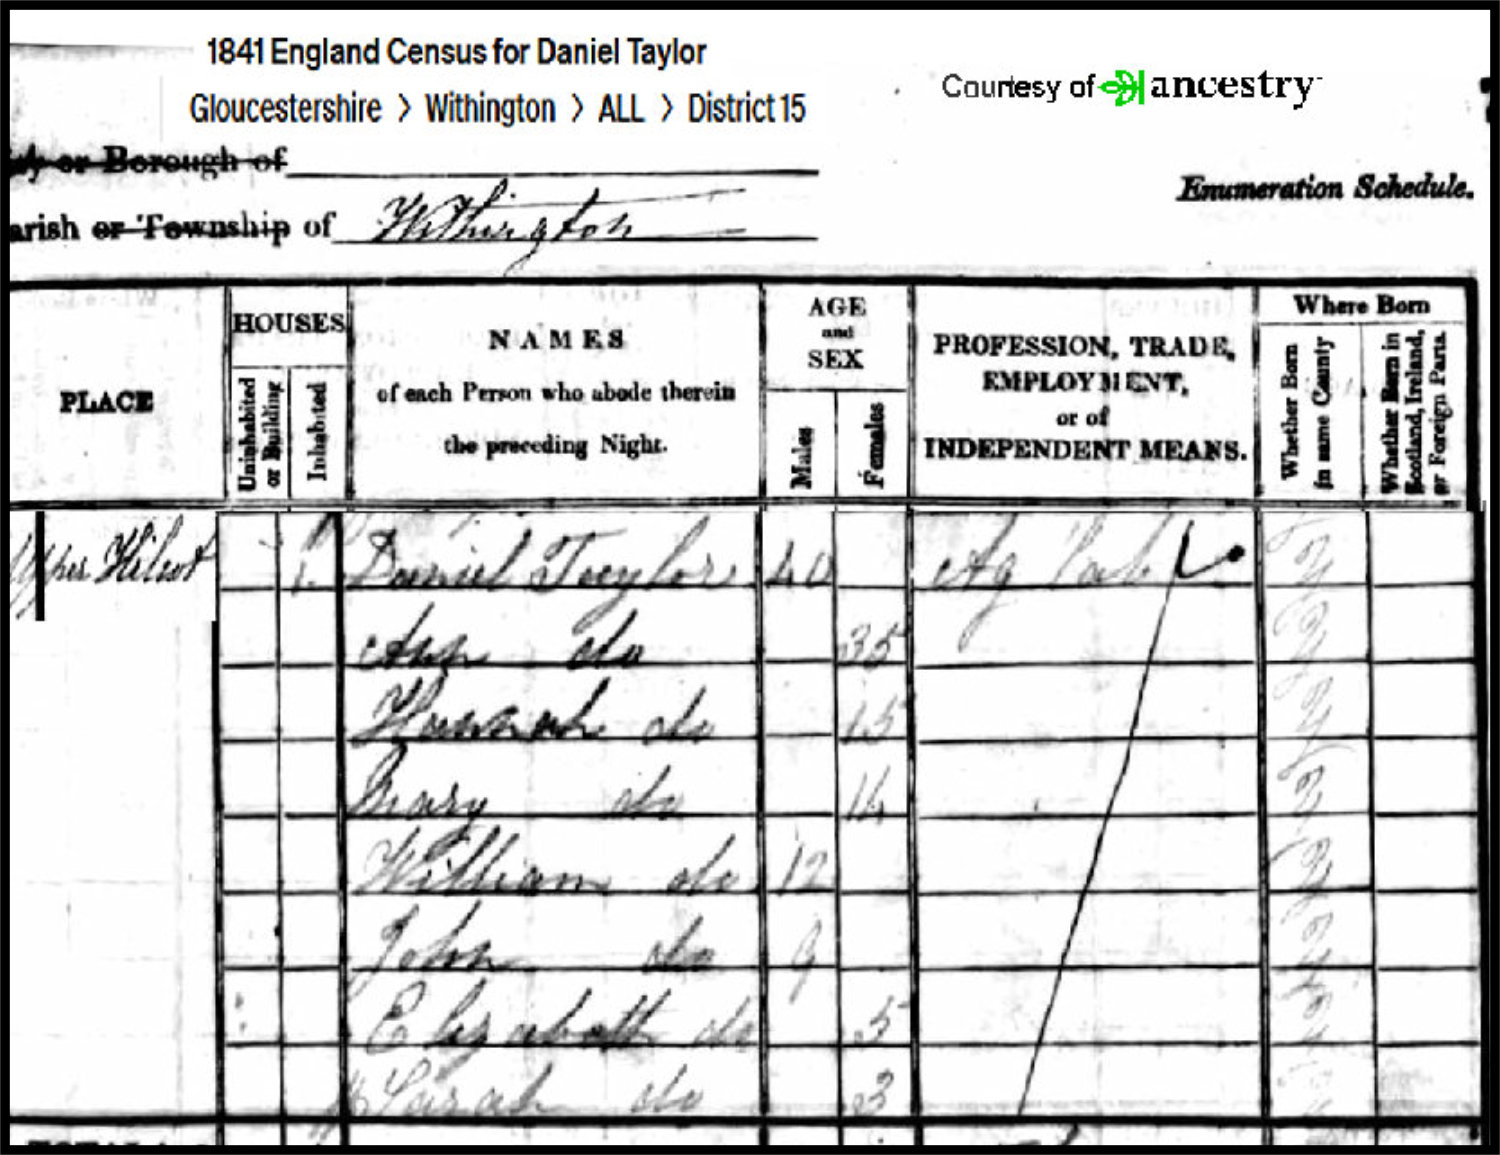 1841 England Census for Daniel Taylor
Gloucestershire > Withington > ALL > District 15
Courtesy of ancestry
or Borough of
arish or Township of Withington
Enumeration Schedule.
PLACE
HOUSES
Uninhabited or Building
Inhabited
NAMES
of each Person who abode therein
the preceding Night.
AGE
and
SEX
Males
Females
PROFESSION, TRADE,
EMPLOYMENT,
or of
INDEPENDENT MEANS.
Where Born
Whether Born in same County
Whether Born in Scotland, Ireland, or Foreign Parts.
pper Hilcot 1 Daniel Taylor 40 Ag Lab y
Ann do 35 y
Hannah do 15 y
Mary do 14 y
William do 12 y
John do 9 y
Elizabeth do 5 y
Sarah do 3 y